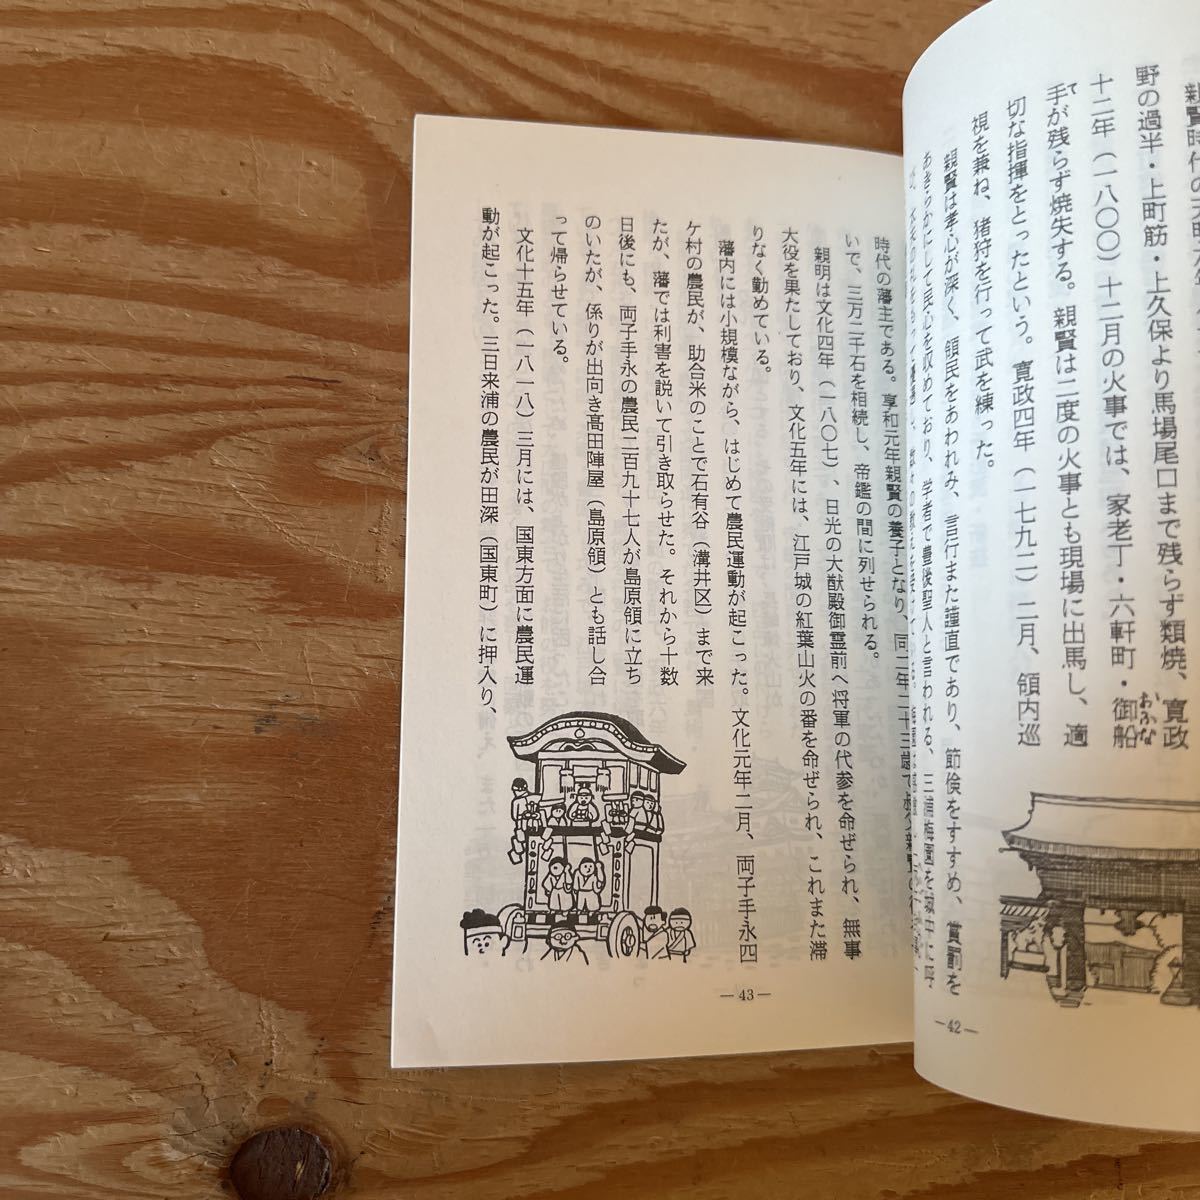 親賢時代の
野の過半・上町筋・上久保より馬場尾口まで残らず類焼、寛政
十二年（一八〇〇）十二月の火事では、家老丁・六軒町・御船
おふな
手が残らず焼失する。親賢は二度の火事とも現場に出馬し、適
て
切な指揮をとったという。寛政四年（一七九二）二月、領内巡
視を兼ね、猪狩を行って武を練った。
親賢は孝心が深く、領民をあわれみ、言行また謹直であり、節倹をすすめ、賞罰を
あきらかにして民心を収めており、学者で豊後聖人と言われる、三浦梅園を
—42—
時代の藩主である。享和元年親賢の養子となり、同二年二十三歳で
いで、三万二千石を相続し、帝鑑の間に列せられる。
親明は文化四年（一八〇七）、日光の大猷殿御霊前へ将軍の代参を命ぜられ、無事
大役を果たしており、文化五年には、江戸城の紅葉山火の番を命ぜられ、これまた滞
りなく勤めている。
藩内には小規模ながら、はじめて農民運動が起こった。文化元年二月、両子手永四
ケ村の農民が、助合米のことで石有谷（溝井区）まで来
たが、藩では利害を説いて引き取らせた。それから十数
日後にも、両子手永の農民二百九十七人が島原領に立ち
のいたが、係りが出向き高田陣屋（島原領）とも話し合
って帰らせている。
文化十五年（一八一八）三月には、国東方面に農民運
動が起こった。三日来浦の農民が田深（国東町）に押入り、
—43—